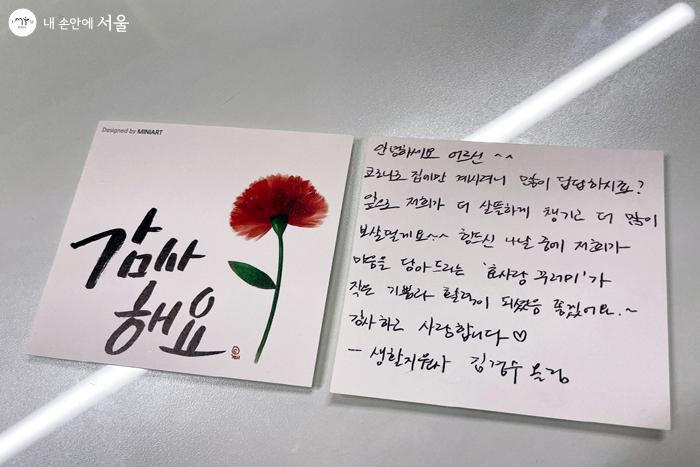 내 손안에 서울
Designed by MINIART
감사
해요
안녕하세요 어르신 ^^
코로나로 집에만 계시려니 많이 답답하시죠?
앞으로 저희가 더 살뜰하게 챙기고 더 많이
보살필게요~~ 힘드신 나날 중에 저희가
마음을 담아 드리는 '효사랑 꾸러미'가
작은 기쁨과 활력이 되셨음 좋겠어요.~
감사하고 사랑합니다♡
- 생활지원사 김경수 올림